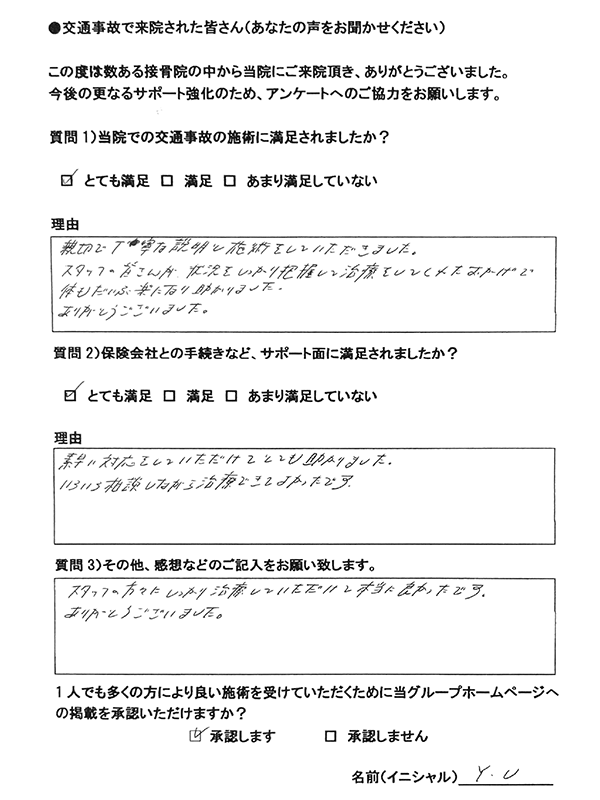 ●交通事故で来院された皆さん（あなたの声をお聞かせください）
この度は数ある接骨院の中から当院にご来院頂き、ありがとうございました。
今後の更なるサポート強化のため、アンケートへのご協力をお願いします。
質問1)当院での交通事故の施術に満足されましたか？
☑ とても満足 □ 満足 □ あまり満足していない
理由
親切で丁寧な説明と施術をしていただきました。
スタッフの皆さんが、状況をしっかり把握して治療をしてくれたおかげで
体もだいぶ楽になり助かりました。
ありがとうございました。
質問2)保険会社との手続きなど、サポート面に満足されましたか？
☑ とても満足 □ 満足 □ あまり満足していない
理由
素早い対応をしていただけてとても助かりました。
いろいろ相談しながら治療できてよかったです。
質問3)その他、感想などのご記入をお願い致します。
スタッフの方々にしっかり治療していただけて本当に良かったです。
ありがとうございました。
1人でも多くの方により良い施術を受けていただくために当グループホームページへ
の掲載を承認いただけますか？
☑ 承認します □ 承認しません
名前(イニシャル) Y.U